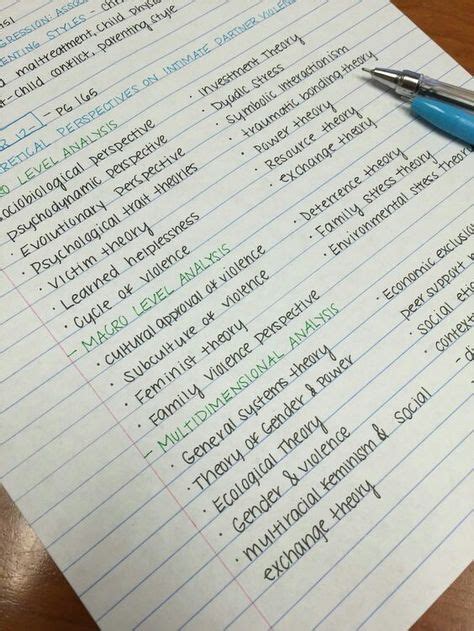 RESSION: ASSOC
ENTING STYLES - ch
maltreatment, child physic
- child conflict, parenting style
12 - PG 165
RETICAL PERSPECTIVES ON INTIMATE PARTNER VIOLEN
RO LEVEL ANALYSIS
sociobiological perspective
Psychodynamic perspective
· Evolutionary Perspective
· Psychological trait theories
· Victim theory
· Learned helplessness
· Cycle of violence
· Investment Theory
· Dyadic Stress
· Symbolic interactionism
· traumatic bonding theory
· Power theory
· Resource theory
· exchange theory
- MACRO LEVEL ANALYSIS
· Cultural approval of violence
· Subculture of violence
· Feminist theory
· Family violence perspective
· Deterrence theory
· Family stress theory
· Environmental stress Theor
- MULTIDIMENSIONAL ANALYSIS
· General systems theory
· Theory of Gender & Power
· Ecological Theory
· Gender & violence
· multiracial feminism & social
exchange theory
· Economic exclusi
peer support
· social eti
· context
- di